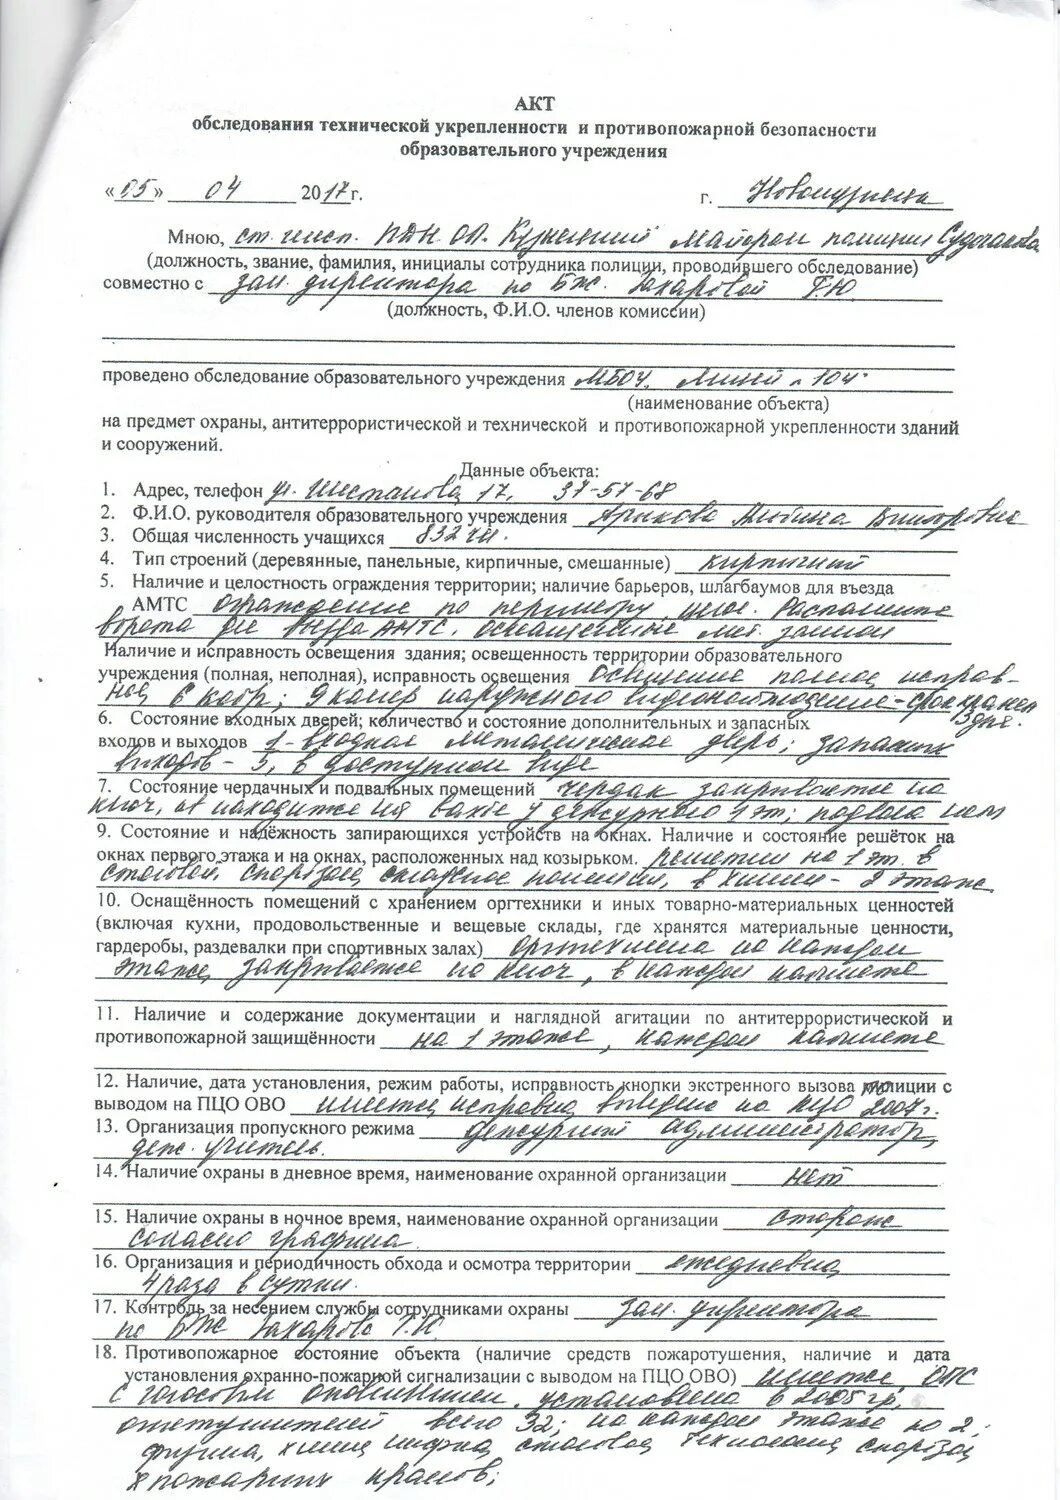 АКТ
обследования технической укрепленности и противопожарной безопасности
образовательного учреждения
«05» 04 2017г. г. Новокузнецк
Мною, ст. инсп. ПДН ОП. Кузнецкий майором полиции
(должность, звание, фамилия, инициалы сотрудника полиции, проводившего обследование)
совместно с зам. директора по БЖ. Захаровой Т.Ю
(должность, Ф.И.О. членов комиссии)
проведено обследование образовательного учреждения МБОУ. Лицей 104
(наименование объекта)
на предмет охраны, антитеррористической и технической и противопожарной укрепленности зданий
и сооружений.
Данные объекта:
1. Адрес, телефон ул. Шестакова 17, 37-57-68
2. Ф.И.О. руководителя образовательного учреждения Викторовна
3. Общая численность учащихся 832 чл.
4. Тип строений (деревянные, панельные, кирпичные, смешанные) кирпичный
5. Наличие и целостность ограждения территории; наличие барьеров, шлагбаумов для въезда
АМТС ограждение по периметру, целое. Распашные
ворота для въезда АМТС, оснащенные
Наличие и исправность освещения здания; освещенность территории образовательного
учреждения (полная, неполная), исправность освещения освещение полное, исправ-
ное, 9 камер наружного видеонаблюдение - срок хранен
6. Состояние входных дверей; количество и состояние дополнительных и запасных
входов и выходов 1 - входная металлическая дверь; запасных
выходов - 5, в доступном виде
7. Состояние чердачных и подвальных помещений чердак закрывается на
ключ, находится на вахте у дежурного 1 эт; подвала нет
9. Состояние и надёжность запирающихся устройств на окнах. Наличие и состояние решёток на
окнах первого этажа и на окнах, расположенных над козырьком. решетки на 1 эт. в
столовой, спортзал, в химии - 2 этаж
10. Оснащённость помещений с хранением оргтехники и иных товарно-материальных ценностей
(включая кухни, продовольственные и вещевые склады, где хранятся материальные ценности,
гардеробы, раздевалки при спортивных залах) оргтехника на каждом
этаже, закрывается на ключ, в каждом кабинете
11. Наличие и содержание документации и наглядной агитации по антитеррористической и
противопожарной защищённости на 1 этаже, каждом кабинете
12. Наличие, дата установления, режим работы, исправность кнопки экстренного вызова полиции с
выводом на ПЦО ОВО имеется, исправна, выведена на ПЦО 2007г.
13. Организация пропускного режима дежурный администратор,
деж. учитель.
14. Наличие охраны в дневное время, наименование охранной организации нет
15. Наличие охраны в ночное время, наименование охранной организации сторож
согласно графика
16. Организация и периодичность обхода и осмотра территории ежедневно,
4 раза в сутки.
17. Контроль за несением службы сотрудниками охраны зам. директора
по БЖ Захарова Т.Ю.
18. Противопожарное состояние объекта (наличие средств пожаротушения, наличие и дата
установления охранно-пожарной сигнализации с выводом на ПЦО ОВО) имеется ОПС
с голосовым оповещением, установлена в 2005 г,
огнетушителей всего 32; на каждом этаже по 2,
физика, химия, информ, столовая, технология, спортзал,
пожарных кранов;